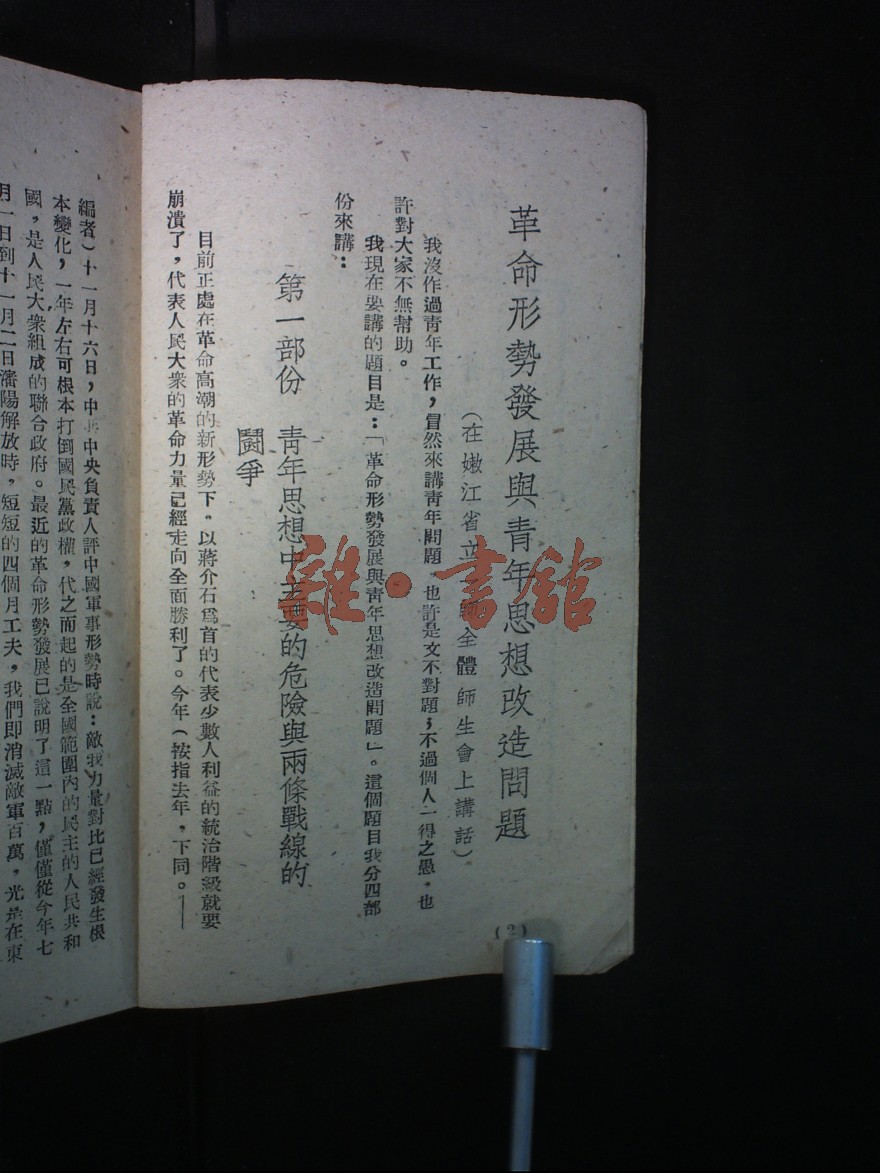 革命形勢發展與靑年思想改造問題
(在嫩江省立 師全體師生會上講話)
我沒作過靑年工作,冒然來講靑年問題,也許是文不對題;不過個人一得之愚,也
許對大家不無幫助。
我現在要講的題目是:「革命形勢發展與靑年思想改造問題」。這個題目我分四部
份來講:
第一部份 靑年思想中主要的危險與兩條戰線的
鬪爭
目前正處在革命高潮的新形勢下。以蔣介石爲首的代表少數人利益的統治階級就要
崩潰了,代表人民大衆的革命力量已經走向全面勝利了。今年(按指去年,下同。——
(2)
編者)十一月十六日,中共中央負責人評中國軍事形勢時說:敵我力量對比已經發生根
本變化,一年左右可根本打倒國民黨政權,代之而起的是全國範圍內的民主的人民共和
國,是人民大衆組成的聯合政府。最近的革命形勢發展已說明了這一點,僅僅從今年七
月一日到十一月二日瀋陽解放時,短短的四個月工夫,我們即消滅敵軍百萬,光是在東
雜·書館